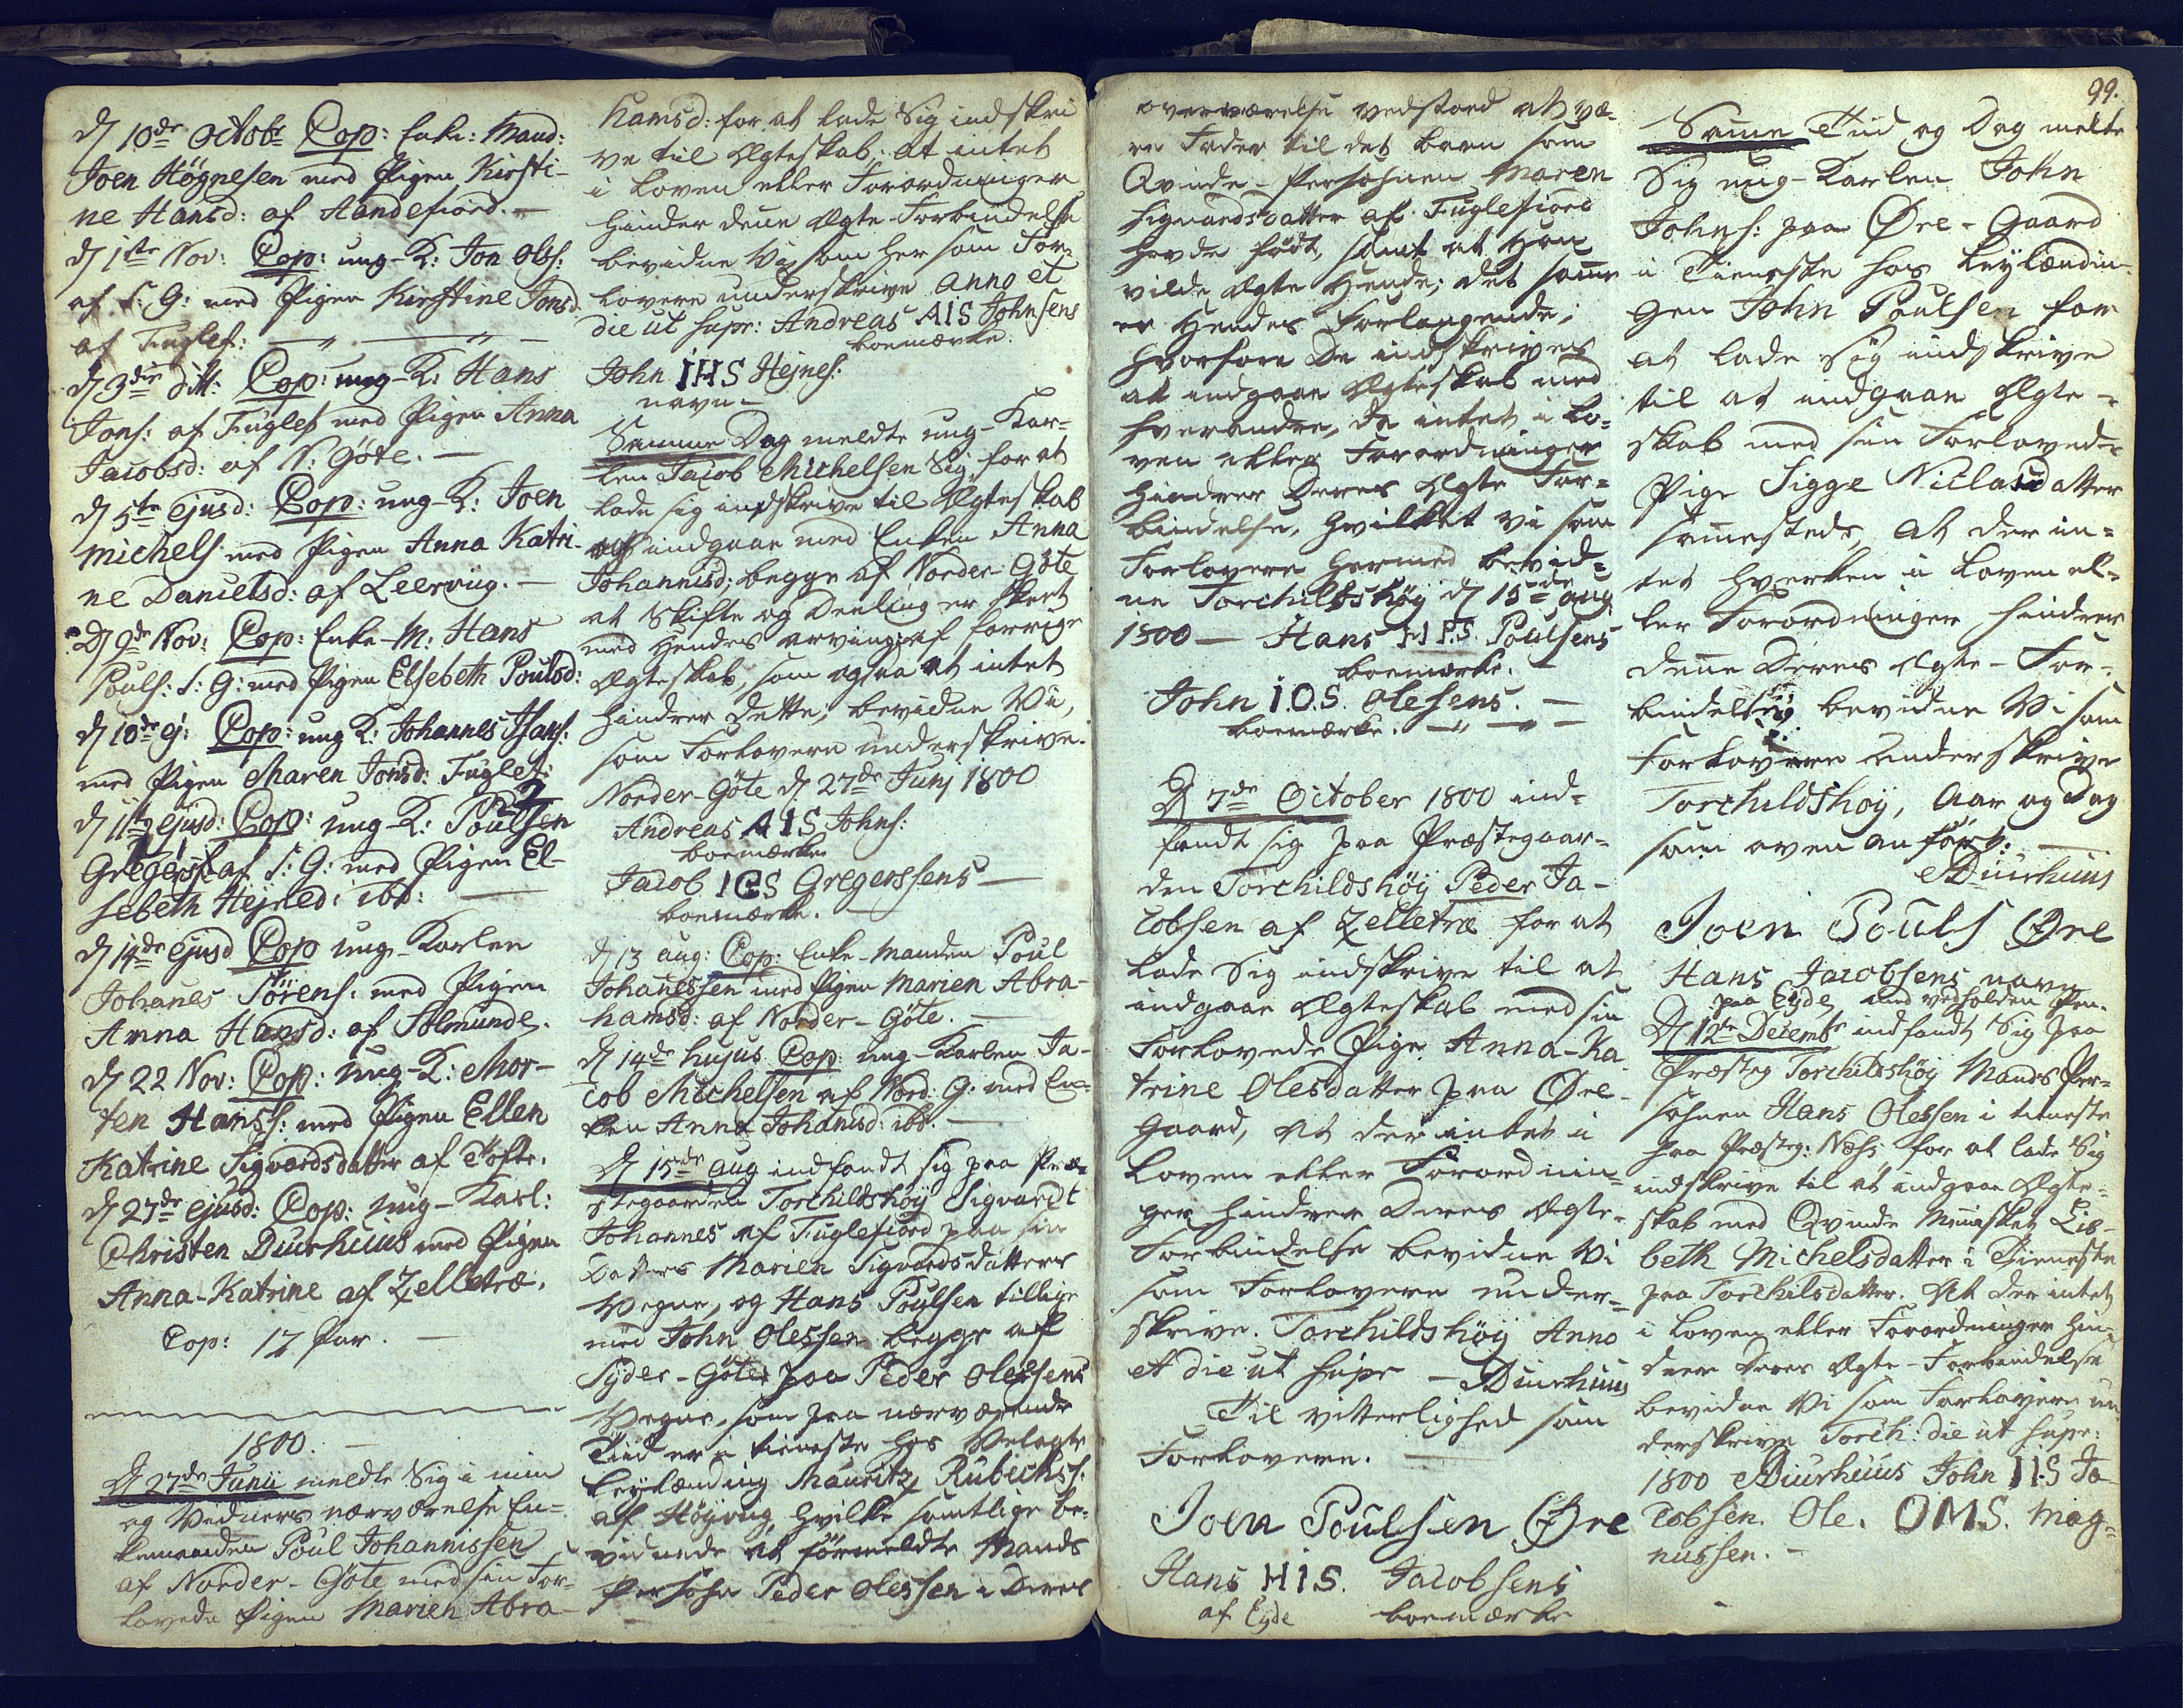 D 10de Octobr Cop: Enke: Mand:
Joen Högnesen med Pigen Kirsti-
ne Hansd: af Andefiord. —
D 1ste Nov: Cop: ung-K: Jon Ols:
af S: G: med Pigen Kirstine Jonsd:
af Fuglef: — " — " —
D 3die dito: Cop: ung-K: Hans
Jons: af Fuglef med Pigen Anna
Jacobsd: af N: Göte. —
D 5te ejusd: Cop: ung-K: Joen
Michels med Pigen Anna Katri-
ne Danielsd: af Leervüg. —
D 9de Nov: Cop: Enke-M: Hans
Pouls: S: G: med Pigen Elsebeth Poulsd:
D 10de ej: Cop: ung K: Johannes Hans:
med Pigen Maren Jonsd: Fuglef:
D 11te ejusd: Cop: ung-K: Poulsen
Gregers: af S: G: med Pigen El-
sebeth Hejnesd: ibd: —
D 14de ejusd Cop ung-Karlen
Johanes Sörens: med Pigen
Anna Hansd: af Solmunde.
D 22 Nov: Cop: ung-K: Mor-
ten Hanss: med Pigen Ellen
Katrine Sigvardsdatter af Tofte.
D 27de ejusd: Cop: ung-Karl:
Christen Diurhuus med Pigen
Anna-Katrine af Zelletræ.
Cop: 17 Par. —
1800. —
D 27de Junii meldte Sig i min
og Vedners nærværelse En-
kemanden Poul Johannissen
af Norder-Göte med sin For-
lovede Pigen Marien Abra-
hamsd: for at lade Sig indskri
ve til Ægteskab. At intet
i Loven eller Forordninger
hinder denne Ægte-Forbindelse
bevidne Vi som her som For-
lovere underskrive Anno et
die ut supr: Andreas AIS Johnsens
boemærke.
John IHS Hejnes:
navn —
Samme Dag meldte ung-Kar-
len Jacob Michelsen Sig for at
lade sig indskrive til Ægteskab
at indgaae med Enken Anna
Johannisd: begge af Norder-Göte
at Skifte og Deeling er skeet
med Hendes arvinger af forrige
Ægteskab, som ogsaa at intet
hindrer Dette, bevidne Vi,
som Forlovere underskrive.
Norder-Göte D 27de Junj 1800
Andreas AIS Johns:
boemærke
Jacob IGS Gregerssens —
boemærke. —
D 13 aug: Cop: Enke-Manden Poul
Johanessen med Pigen Marien Abra-
hamsd: af Norder-Göte. —
D 14de hujus Cop: ung-Karlen Ja-
cob Michelsen af Nord: G: med En-
ken Anna Johanisd: ibd. —
D 15de Aug indfandt sig paa Præ-
stegaarden Torchildshöÿ Sigvardt
Johannes af Fuglefiord paa sin
Datters Marien Sigvardsdatters
Vegne, og Hans Poulsen tillige
med John Olessen begge af
Syder-Göte paa Peder Olessens
Vegne, som paa nærværende
Tiid er i tieneste hos Velagte
Leylænding Mauritz Rubichss:
af Höyvüg hvilke samtlige be-
vidnede at förmeldte Mands
Persohn Peder Olessen i Deres
overværelse vedstoed at væ-
re Fader til det barn som
Qvinde-Personen Maren
Sigvardsdatter af Fuglefiord
havde födt, samt at Han
vilde Ægte Hende; det samme
er Hendes Forlangende;
hvorfore De indskrives
at indgaae Ægteskab med
hverandre, da intet i Lo-
ven eller Forordninger
hindrer Deres Ægte For-
bindelse, hvilket vi som
Forlovere hermed bevid-
ne Torchildshöÿ D 15de Aug
1800 — Hans H P.S. Poulsens
boemærke. —
John I.O.S. Olesens. —
boemærke. — " — " —
D 7de October 1800 ind-
fandt sig paa Præstegaar-
den Torchildshöÿ Peder Ja-
cobsen af Zelletræ for at
Lade Sig indskrive til at
indgaae Ægteskab med sin
Forlovede Pige Anna-Ka-
trine Olesdatter paa Öre-
Gaard, At der intet i
Loven eller Forordnin-
ger hindrer Deres Ægte-
Forbindelse bevidne Vi
som Forlovere under-
skrive. Torchildshöÿ Anno
et die ut supr — ADiurhuus
Til vitterlighed som
Forlovere. —
Joen Poulsen Öre
Hans H I S. Jacobsens
af Eyde boemærke
99.
Samme Tiid og Dag meldte
Sig ung-Karlen John
Johns: paa Öre-Gaard
i Tieneste hos Leylændin-
gen John Poulsen for
at lade sig indskrive
til at indgaae Ægte-
skab med sin Forloved-
Pige Sigge Niclasdatter
sammesteds, At der in-
tet hverken i Loven el-
ler Forordninger hindrer
denne Deres Ægte-For-
bindelse, bevidne Vi som
Forlovere underskrive
Torchildshöy, Aar og Dag
som oven anfört. —
ADiurhuus
Joen Pouls Öre
Hans Jacobsens navn
paa Eyde med vedholden Pen.
D 12te Decembr indfandt Sig paa
Præsteg Torchildshöÿ Mands Per-
sohnen Hans Olessen i tieneste
paa Præsteg: Næss for at lade Sig
indskrive til at indgaae Ægte-
skab med Qvinde Mennisket Lis-
beth Michelsdatter i Tieneste
paa Torchilsdatter. At der intet
i Loven eller Forordninger hin-
drer deres Ægte-Forbindelse
bevidne Vi som Forlovere un-
derskrive Torch: die ut supr:
1800 ADiurhuus John I I.S Ja-
cobsen. Ole. OM.S. Mag-
nussen. —